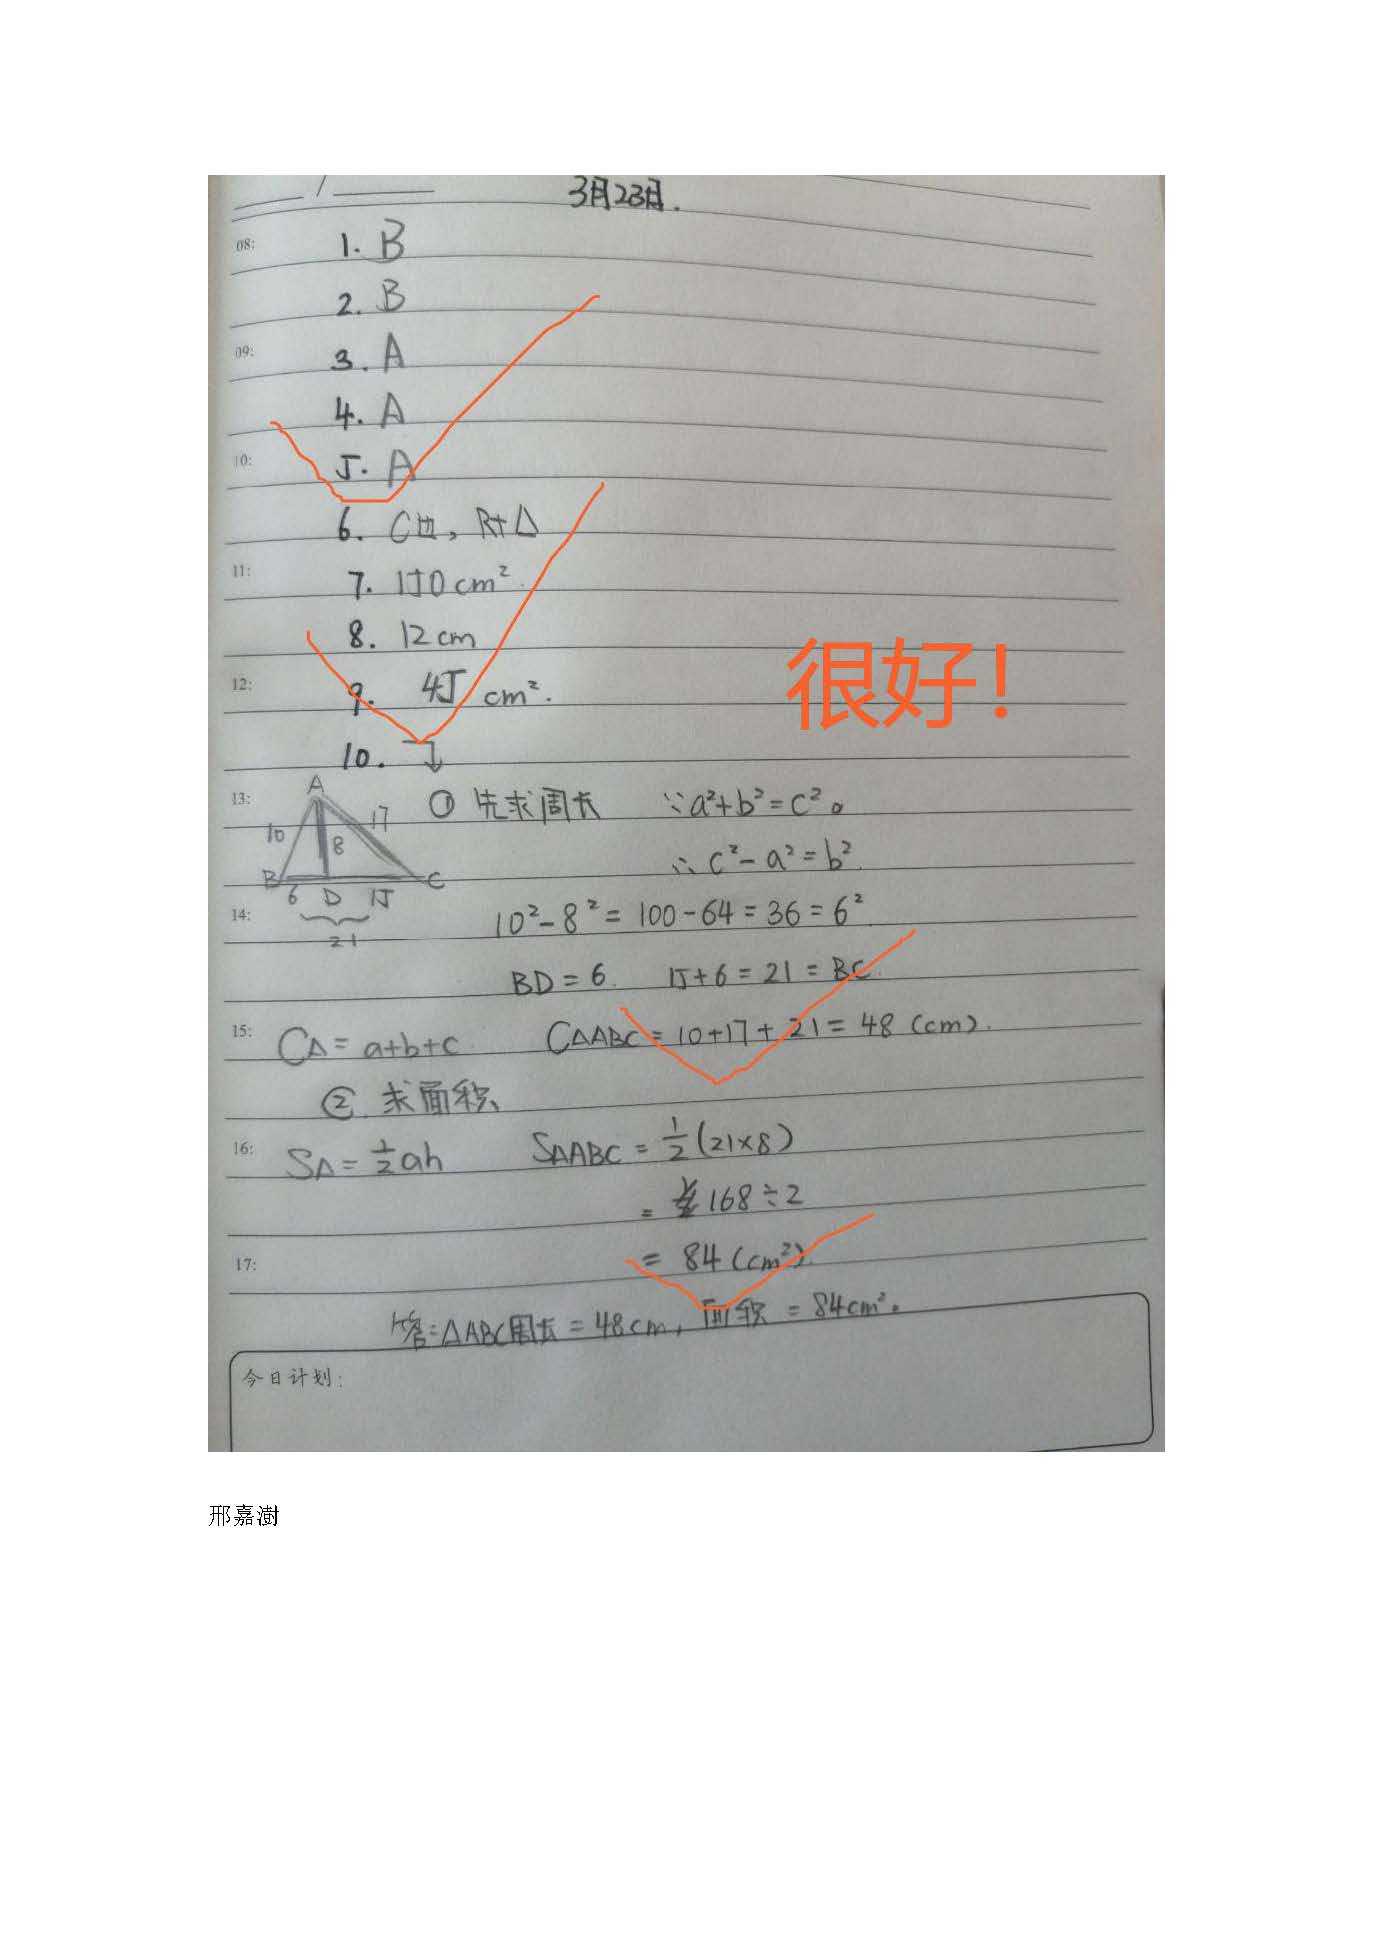 3月23日.
08:
1. B
2. B
09:
3. A
4. A
10:
5. A
6. C四, Rt△
11:
7. 150cm².
8. 12cm
很好！
12:
9. 45 cm².
10.
13:
A
10 17
8
B C
6 D 15
21
① 先求周长 ∵a²+b²=c²。
∴c²-a²=b².
14:
10²-8²=100-64=36=6².
BD=6. 15+6=21=BC.
15:
C△=a+b+c. C△ABC=10+17+21=48(cm).
②.求面积
16:
S△=½ah S△ABC=½(21×8)
=168÷2
17:
=84(cm²).
答:△ABC周长=48cm,面积=84cm².
今日计划:
邢嘉澍